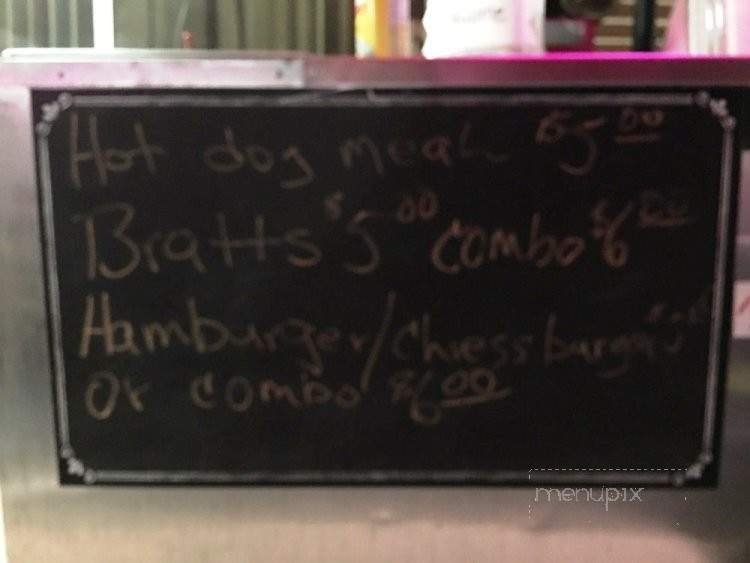 Hot dog meal $5.00
Bratts $5.00 combo $6.00
Hamburger/Chessburger $5.00
Or combo $6.00
menupix